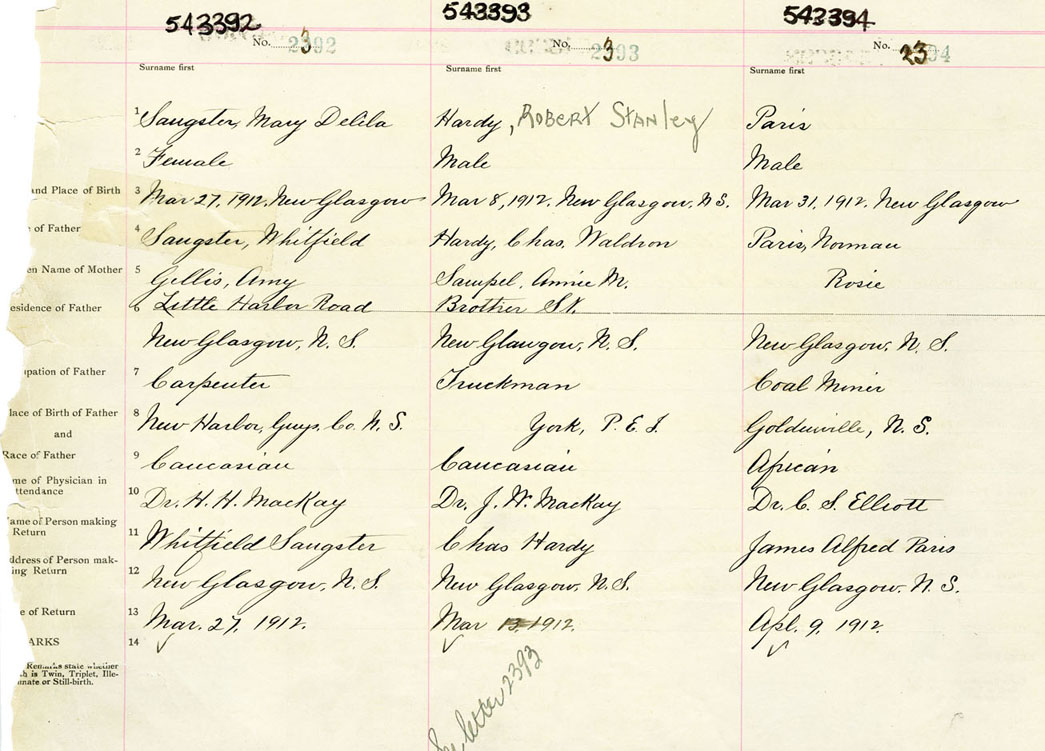 543392 543393 543394
No. 2392 No. 2393 No. 2394
Surname first Surname first Surname first
1 Sangster, Mary Delila Hardy, Robert Stanley Paris
2 Female Male Male
and Place of Birth 3 Mar 27, 1912. New Glasgow Mar 8, 1912. New Glasgow, N S. Mar 31, 1912. New Glasgow
of Father 4 Sangster, Whitfield Hardy, Chas. Waldron Paris, Norman
en Name of Mother 5 Gillis, Amy Sampel, Annie M. Rosie
esidence of Father 6 Little Harbor Road Brother St.
New Glasgow, N. S. New Glasgow, N. S. New Glasgow, N. S.
pation of Father 7 Carpenter Truckman Coal Miner
lace of Birth of Father 8 New Harbor, Guys. Co. N. S. York, P. E. I. Goldenville, N. S.
and
Race of Father 9 Caucasian Caucasian African
me of Physician in
ttendance 10 Dr. H. H. MacKay Dr. J. W. MacKay Dr. C. S. Elliott
ame of Person making
Return 11 Whitfield Sangster Chas Hardy James Alfred Paris
ddress of Person mak-
ing Return 12 New Glasgow, N. S. New Glasgow, N. S. New Glasgow, N. S.
e of Return 13 Mar. 27, 1912. Mar 13 1912. Apl. 9, 1912.
ARKS 14
Remarks state whether
h is Twin, Triplet, Ille-
imate or Still-birth.
letter 2393